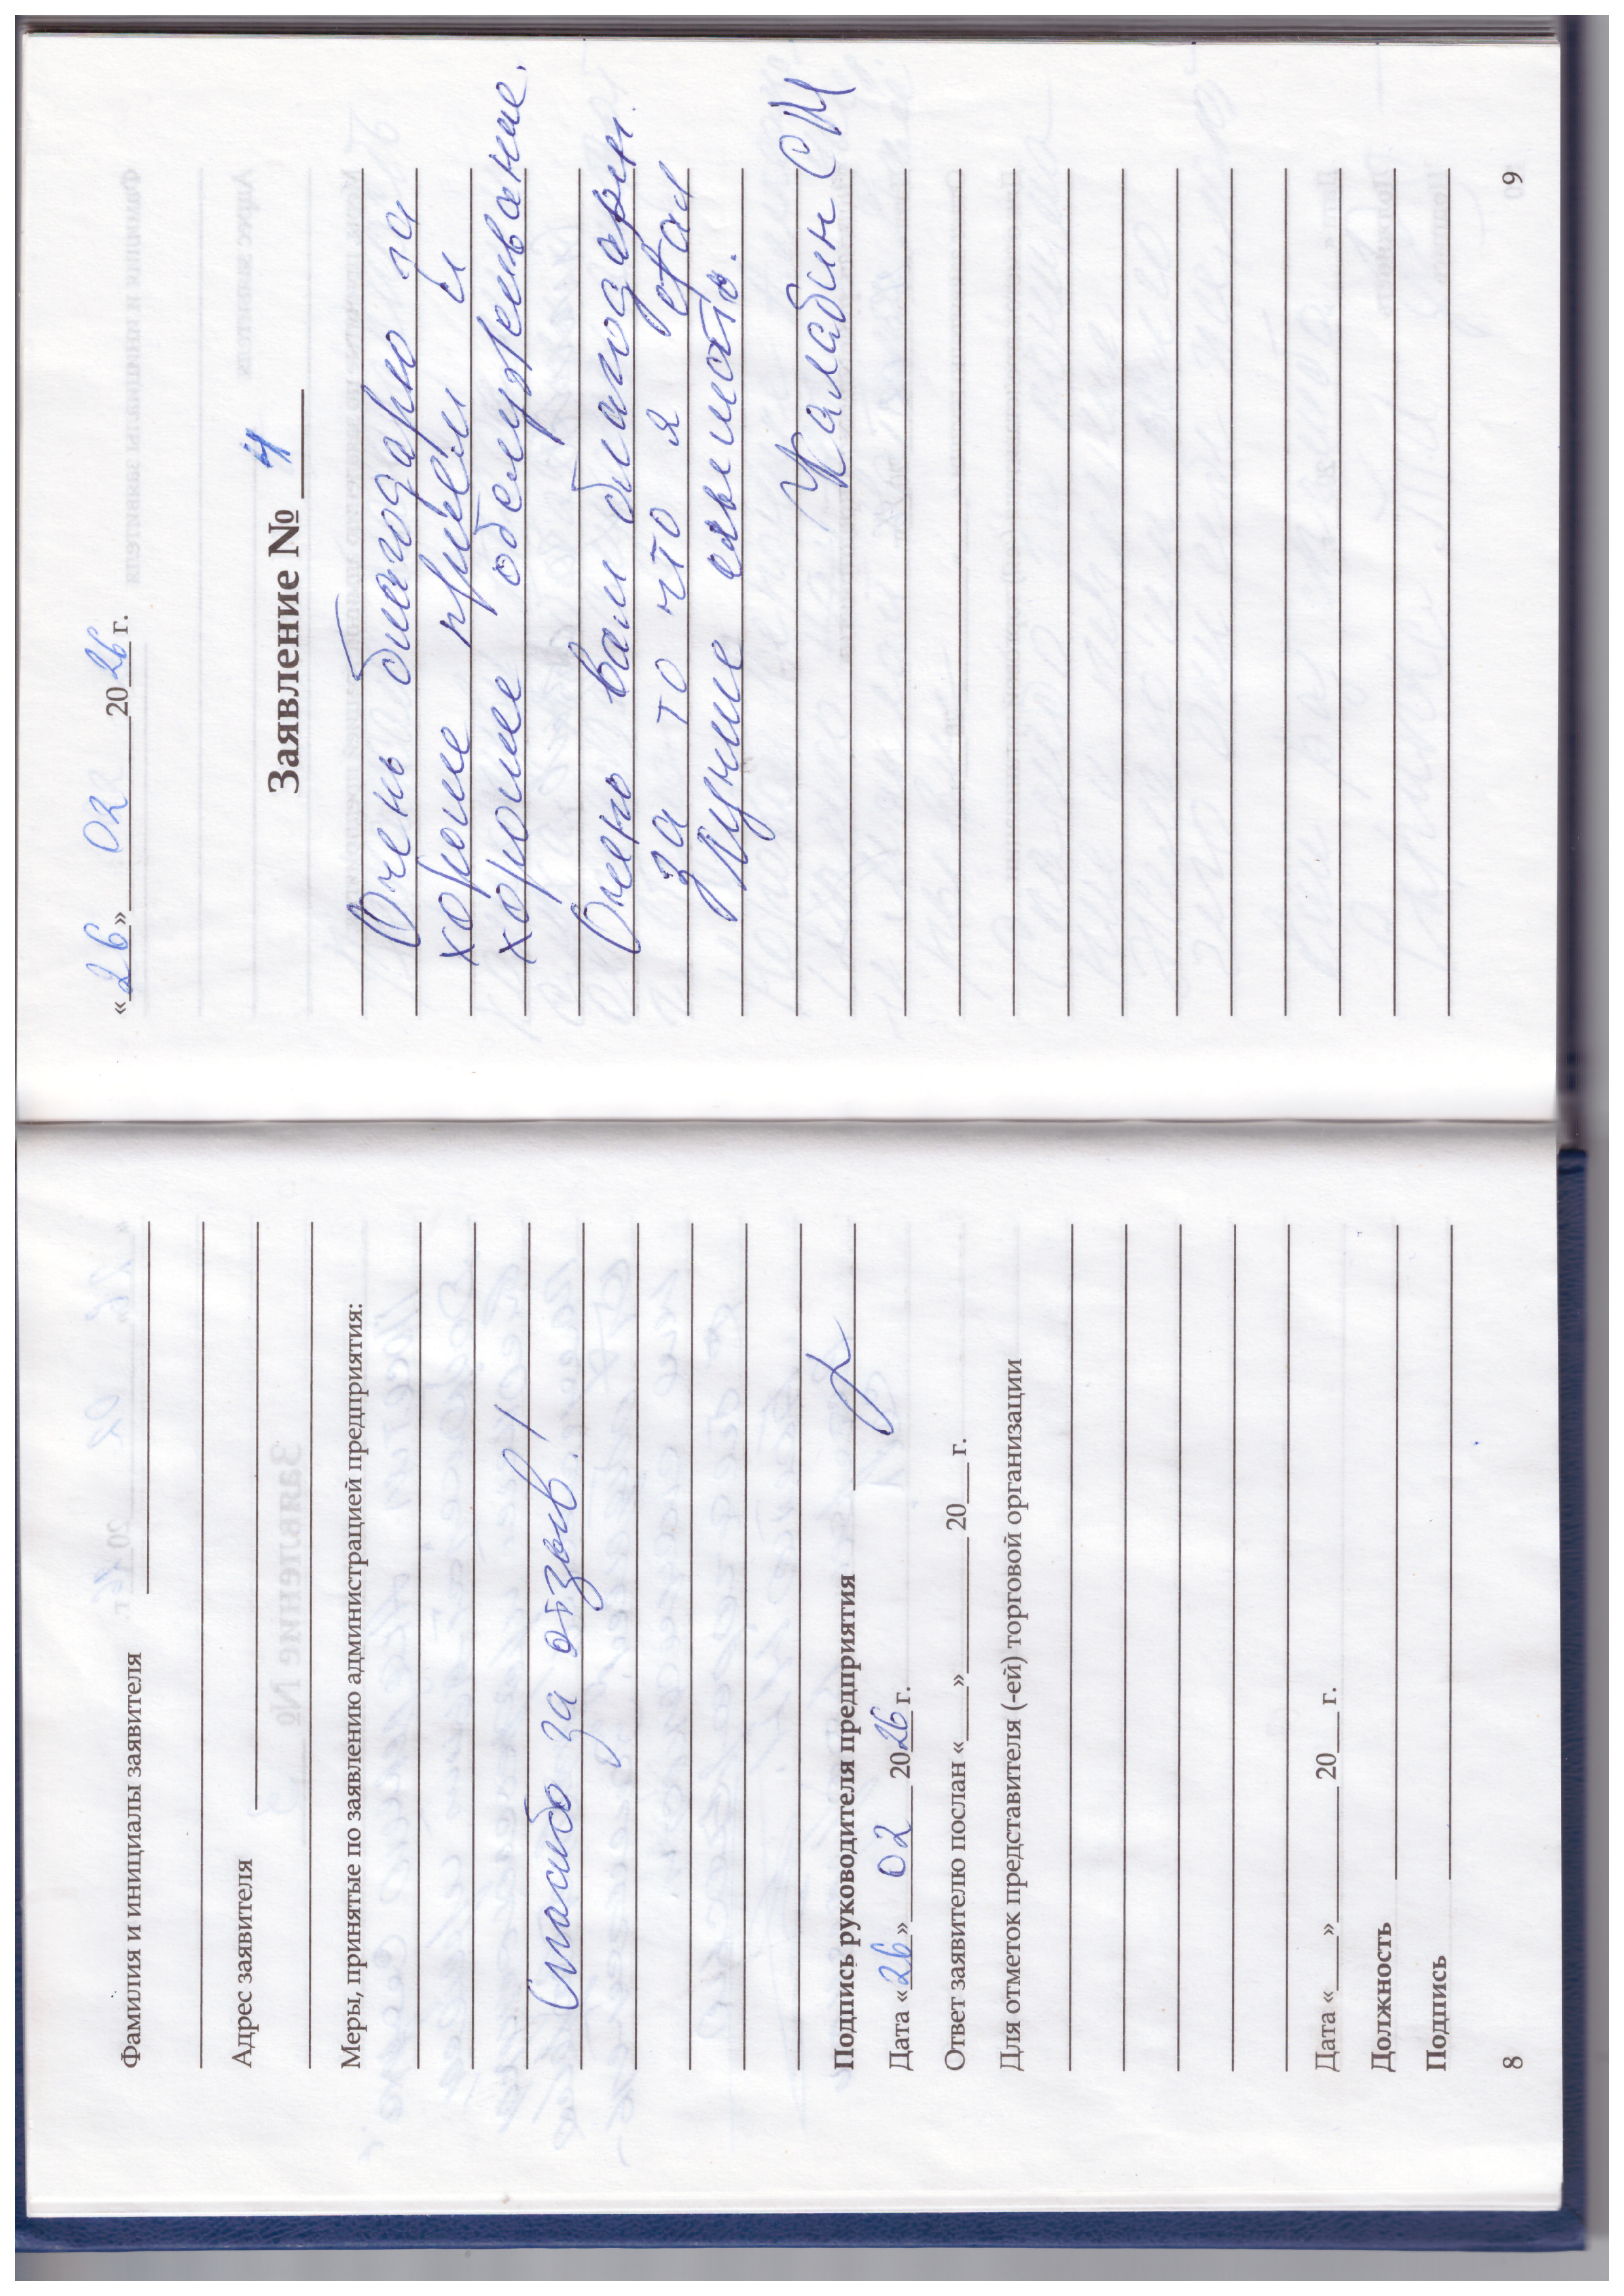 Фамилия и инициалы заявителя
Адрес заявителя
Меры, принятые по заявлению администрацией предприятия:
Спасибо за отзыв!
Подпись руководителя предприятия
Дата «26» 02 2026 г.
Ответ заявителю послан «___»________20___г.
Для отметок представителя (-ей) торговой организации
Дата «___»________20___г.
Должность
Подпись
8
«26» 02 2026 г.
Заявление № 4
Очень благодарю за
хороше приём и
хорошее обслуживание.
Очено вам благодарен.
за то что я стал
лучше слышать.
Жалабин СМ
9